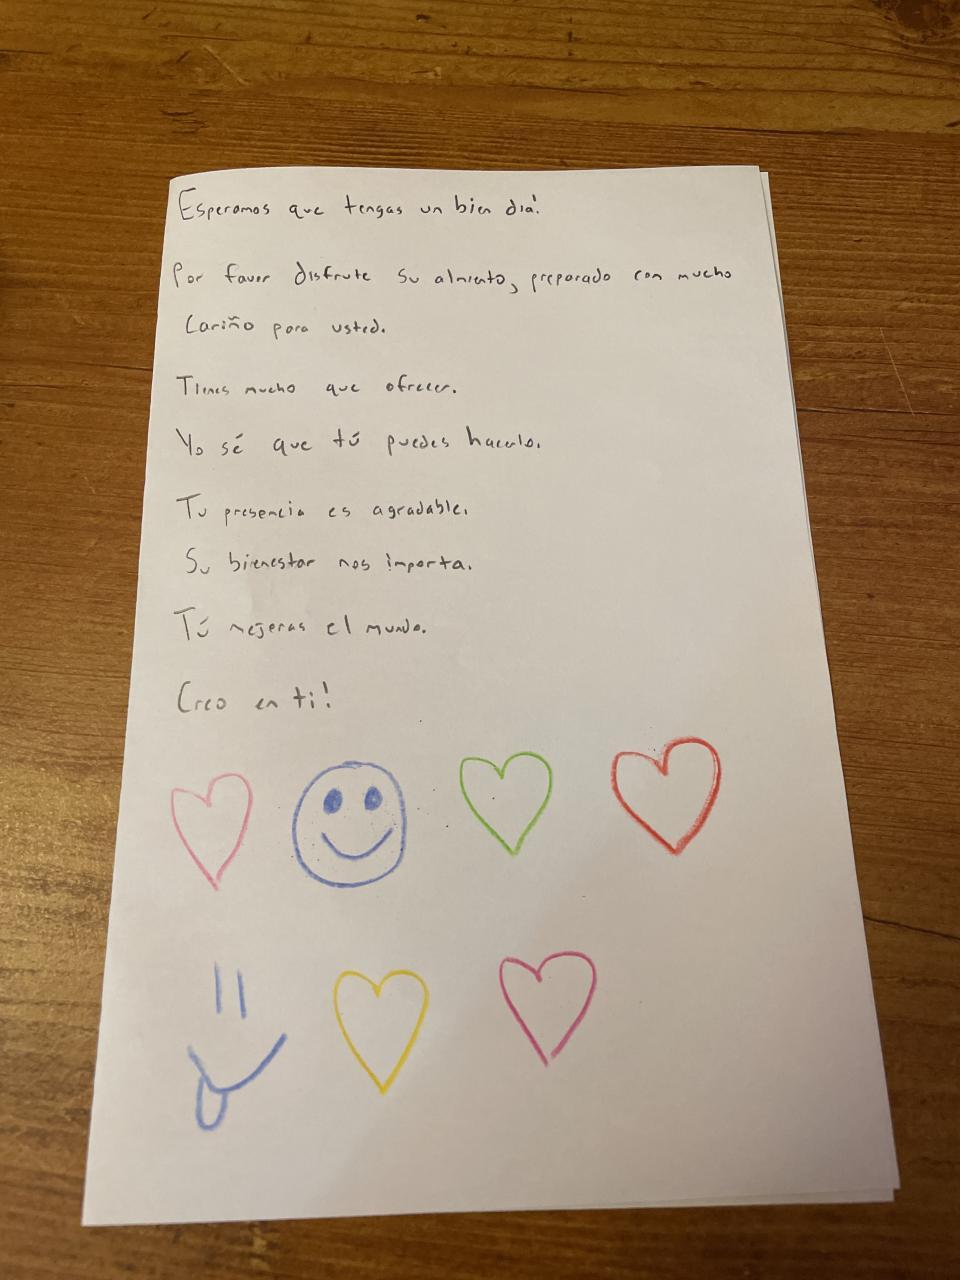 Esperamos que tengas un bien día!
Por favor disfrute su almiento, preparado con mucho
cariño para usted.
Tienes mucho que ofrecer.
Yo sé que tú puedes hacerlo.
Tu presencia es agradable.
Su bienestar nos importa.
Tú mejoras el mundo.
Creo en ti!